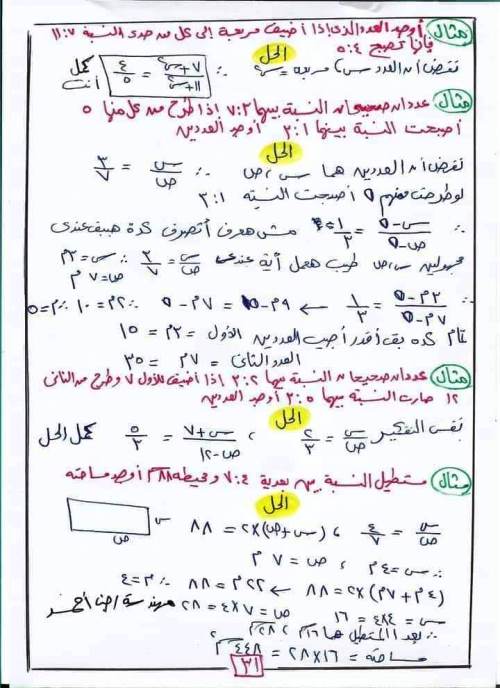 مثال أوجد العدد الذى إذا أضيف مربعه إلى كل من حدى النسبة ٧ : ١١
فإنها تصبح ٤ : ٥
الحل
نفرض أن العدد س ، مربعه = س٢ ∴ (٧ + س٢)/(١١ + س٢) = ٤/٥ كمل أنت
مثال عددان صحيحان النسبة بينهما ٣ : ٧ إذا طرح من كل منهما ٥
أصبحت النسبة بينهما ١ : ٣ أوجد العددين
الحل
نفرض أن العددين هما س ، ص ∴ س/ص = ٣/٧
لو طرحت منهم ٥ أصبحت النسبة ١ : ٣
∴ (س - ٥)/(ص - ٥) = ١/٣ مش هعرف أتصرف كدة هيبقى عندى
مجهولين س ، ص طيب هعمل أية عندى س/ص = ٣/٧ ∴ س = ٣م
ص = ٧م
∴ (٣م - ٥)/(٧م - ٥) = ١/٣ ← ٩م - ١٥ = ٧م - ٥ ∴ ٢م = ١٠ ∴ م = ٥
تمام كده بقى أقدر أجيب العددين الأول = ٣م = ١٥
العدد الثانى = ٧م = ٣٥
مثال عددان صحيحان النسبة بينهما ٢ : ٣ إذا أضيف للأول ٧ وطرح من الثانى
١٢ صارت النسبة بينهما ٥ : ٣ أوجد العددين
الحل
نفس التفكير س/ص = ٢/٣ ، (س + ٧)/(ص - ١٢) = ٥/٣ كمل الحل
مثال مستطيل النسبة بين بعدية ٤ : ٧ ومحيطه ٨٨ سم أوجد مساحته
الحل
س/ص = ٤/٧ ، (س + ص) × ٢ = ٨٨
س
ص
∴ س = ٤م ، ص = ٧م
(٤م + ٧م) × ٢ = ٨٨ ← ٢٢م = ٨٨ ∴ م = ٤
س = ٤×٤ = ١٦ ص = ٧×٤ = ٢٨
∴ بعدا المستطيل هما ١٦ سم ، ٢٨ سم
مساحته = ١٦ × ٢٨ = ٤٤٨ سم٢
٣١